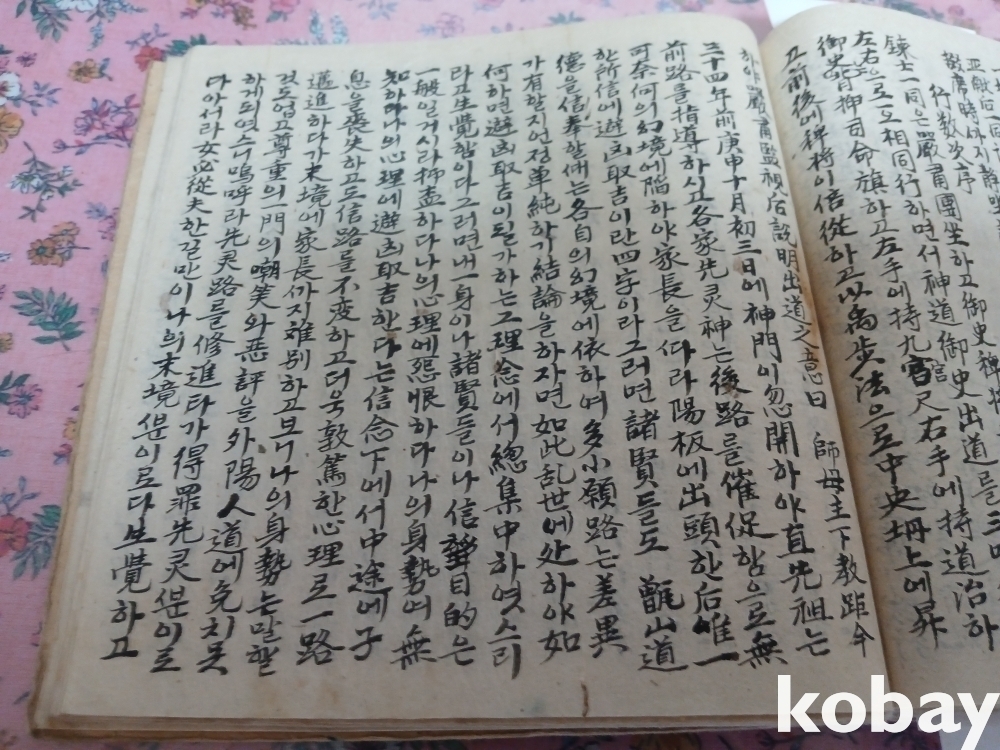 行数次序
鍊士一同은嚴甫團坐하고御史裨將
左右으로互相同行하면서神道御史出道를三
御史皆押司命旗하고左手에持九宮尺右手에持道治하
고前後에稗將이倍從하고以禹步法으로中央坍上에昇
하야嚴甫監視后說明出道之意曰 師母主下教距今
二十四年前庚申十月初三日에神門이忽開하야直先祖는
前路를指導하시고各家先灵神는後路를催促함으로無
可奈何의幻境에陷하야家長을ᄯᅡ라陽板에出頭한后唯一
한所信에避凶取吉이란四字이라그러면諸賢들도 甑山道
德을信奉할때는各自의幻境에依하여多小願路는差異
가有할지언정单純하기結論을하자면如此乱世에处하야如
何하면避凶取吉이될가하는그理念에서總集中하엿스리
라고生覺함이다그러면내一身이나諸賢들이나信 目的은
一般일게시라抑盃하다나의心理에怨恨하다나의身勢여無
知하다나의心理에避凶取吉한다는信念下에서中途에子
息을喪失하고도信路를不変하고더욱敦篤한心理로一路
邁進하다가末境에家長ᄭᅡ지離別하고보니나의身勢는말할
것도업고尊重의一門의嘲笑와惡評을外陽人道에免치못
하게되엿스니嗚呼라先灵路를修進타가得罪先灵分이로
다아서라女必從夫한길만이나의末境分이로다生覺하고